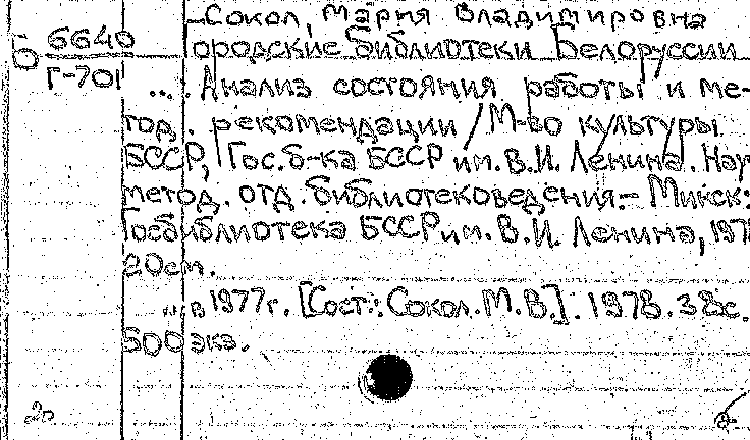 Сокол, Мария Владимировна
б 6640
Г-701
ородские библиотеки Белоруссии
... . Анализ состояния работы и ме-
тод. рекомендации / М-во культуры
БССР, Гос. б-ка БССР им. В.И. Ленина. Нау
метод. отд. библиотековедения. - Минск:
Госбиблиотека БССР им. В.И. Ленина, 197
20 см.
... в 1977 г. [Сост.: Сокол М.В.]. 1978. 38 с.
500 экз.